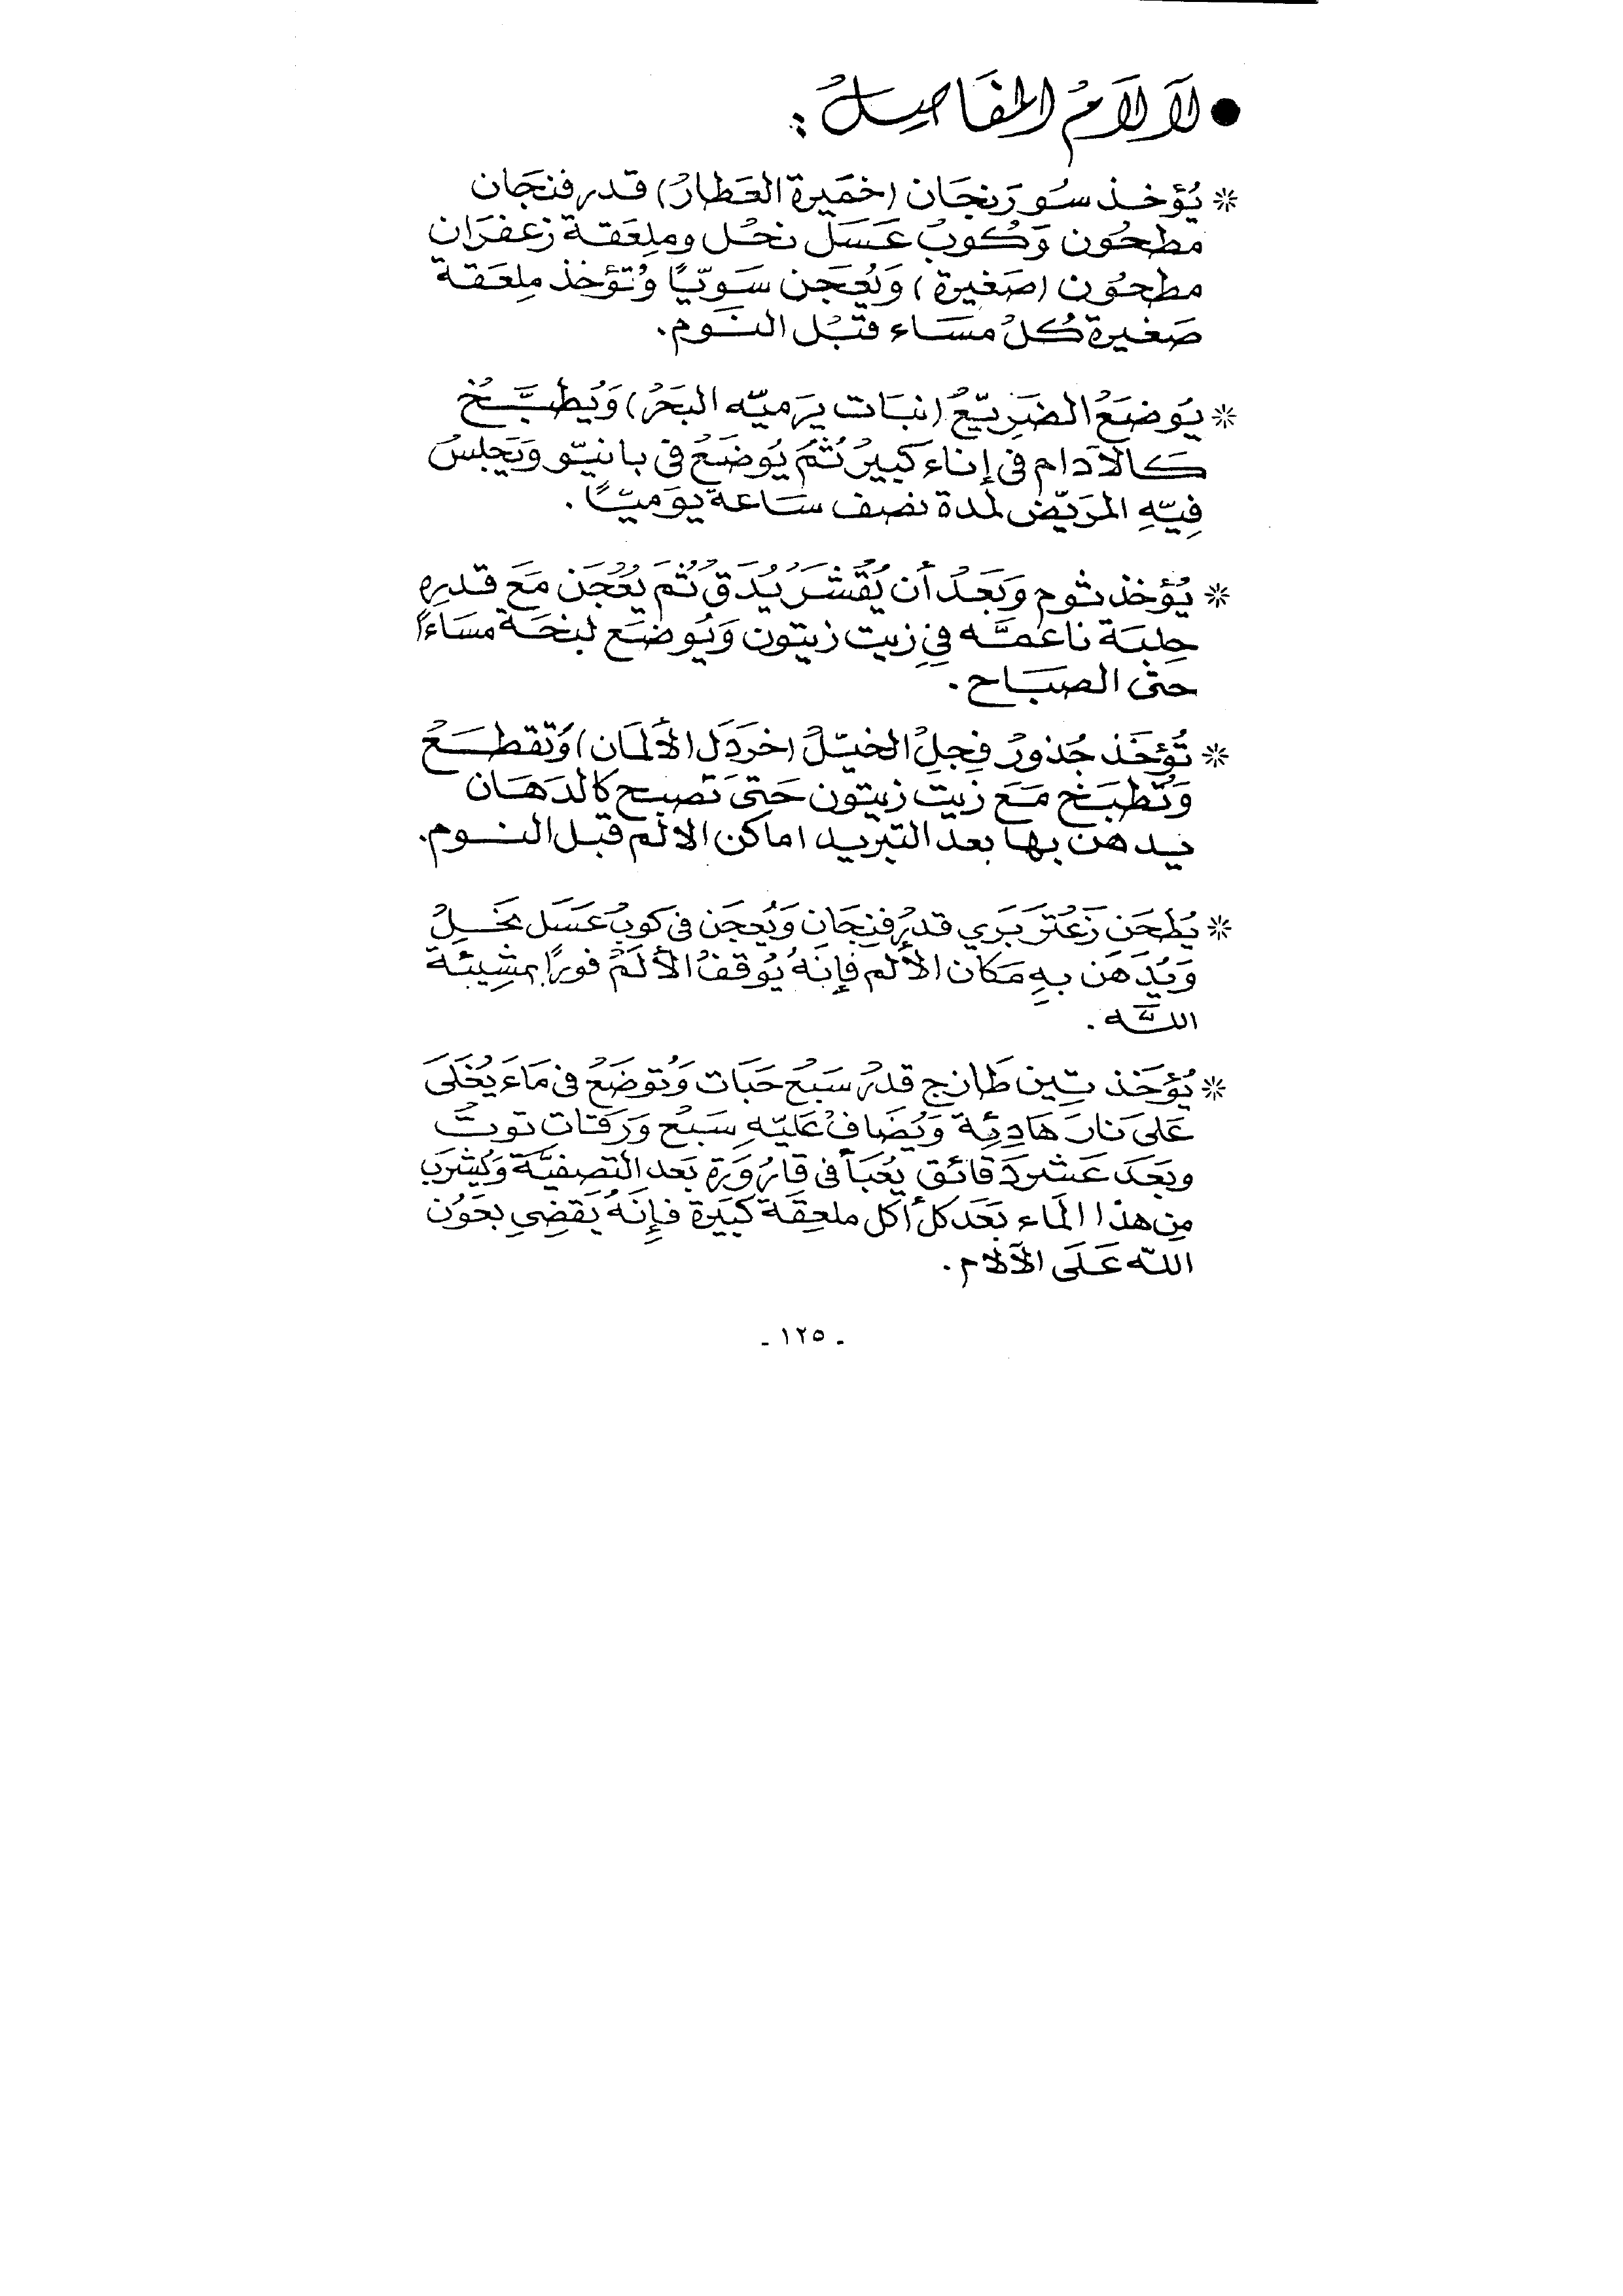 ● لآلام المفاصل :
* يُؤخذ سُورَنجَان (خمَيرة العَطارْ) قدر فنجَان
مطحُون وَكُوبْ عَسَلْ نحْل وملِعَقة زعفرَان
مطحوُن (صَغيرة) وَيُعجَن سَويّاً وُتؤخذ ملِعَقة
صَغيرة كُلْ مسَاء قبْل النَوم.
* يَوضَعُ الضَرِيّعُ (نبَات يرَميّه البَحَرْ) وَيُطبَّخ
كَالآدام في إناء كَبيرْ ثُمَ يُوضَعُ في بانيّو وَيَجلِسْ
فِيّهِ المَريّض لمدة نصف سَاعة يوَميّاً .
* يُؤخذ ثوم وَبَعَدْ أن يُقْشَرَ يُدَقْ ثُمَ يُعْجَن مَعَ قدرِهِ
حِلبَة ناعمَّه فيِ زيت زيتون وَيُوضَع لبخَة مسَاءاً
حتى الصبَاح .
* تُؤخَذ جُذورْ فِجلِ الخيّلْ (خرَدَل الألمَان) وَتُقطَعُ
وَتُطبَخ مَعَ زَيت زيتون حَتىَ تَصبح كالدَهَان
يدهن بها بعد التبريد اماكن الالم قبل النوم.
* يُطحَن زَعُتَر بَرَي قدرِ فنِجَان وَيُعجَن في كوبْ عَسَل نَحَلِ
وَيُدَهَن بهِ مَكان الألم فإنَهُ يُوقفْ الألَمْ فورًا بمشِيئة
اللَّه .
* يُؤَخَذ تِين طَازج قدرْ سَبعُ حَبَات وَتُوضَعُ في مَاءَ يُغَلىَ
عَلىَ نارَ هَادِئِة وَيُضَافْ عَليّهِ سَبعُ وَرَقَات توتْ
وبعَدَ عَشرَ دَقائق يُعَبأ في قارُورَة بَعد التصفيَّة وَيُشرَبَ
مِن هذا الماء بَعَد كل أكل ملعِقَة كَبَيرة فإنَهُ يَقضِي بعَوُن
اللّه عَلَى الآلام .
- ١٢٥ -